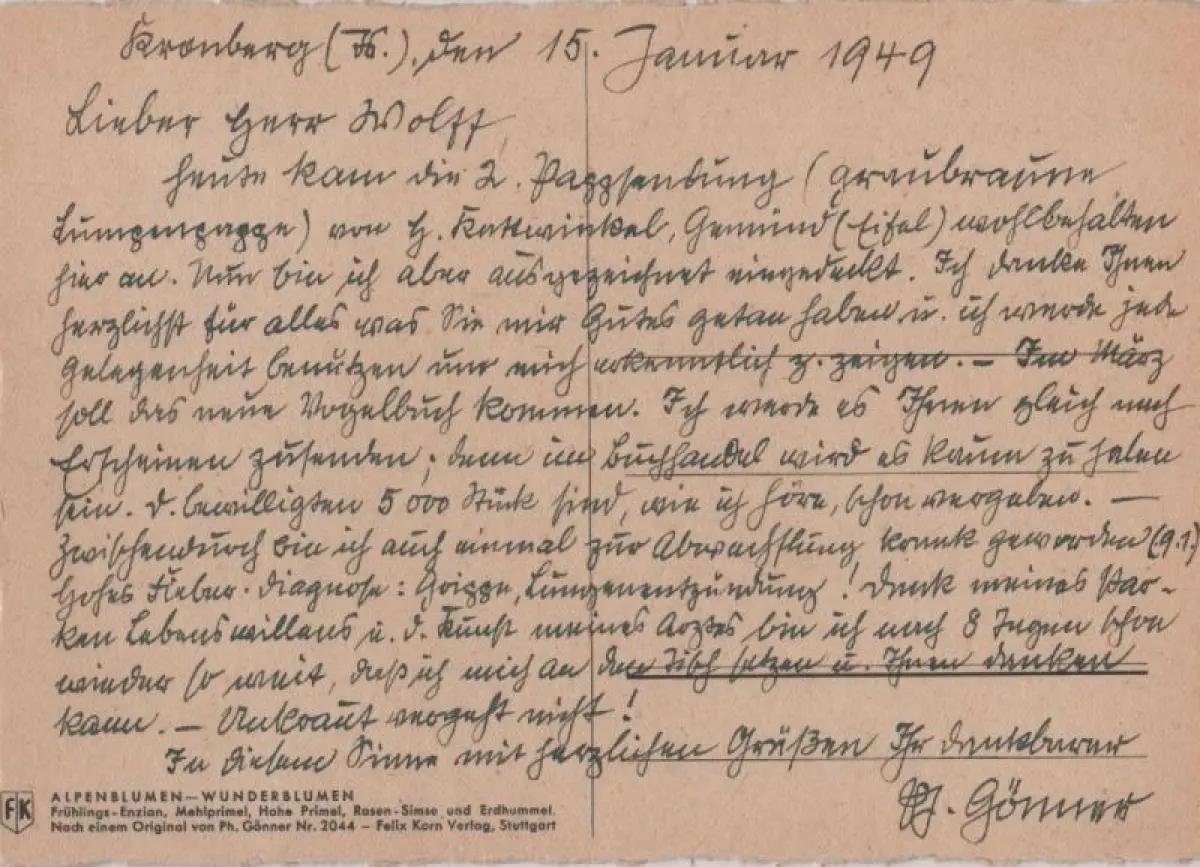 Kronberg (Ts.), den 15. Januar 1949
Lieber Herr Wolff,
heute kam die 2. Pappsendung (graubraune
Lumpenpappe) von H. Kattwinkel, Gemünd (Eifel) wohlbehalten
hier an. Nun bin ich aber ausgezeichnet eingedeckt. Ich danke Ihnen
herzlichst für alles was Sie mir Gutes getan haben u. ich werde jede
Gelegenheit benutzen um mich erkenntlich z. zeigen. — Im März
soll das neue Vogelbuch kommen. Ich werde es Ihnen gleich nach
Erscheinen zusenden; denn im Buchhandel wird es kaum zu haben
sein. D. bewilligten 5000 Stück sind, wie ich höre, schon vergeben. —
Zwischendurch bin ich auch einmal zur Abwechslung krank geworden (9.1.)
Hohes Fieber. Diagnose: Grippe, Lungenentzündung! Dank meines star-
ken Lebenswillens u. d. Kunst meines Arztes bin ich nach 8 Tagen schon
wieder so weit, daß ich mich an den Tisch setzen u. Ihnen danken
kann. — Unkraut vergeht nicht!
In diesem Sinne mit herzlichen Grüßen Ihr dankbarer
Ph. Gönner
FK
ALPENBLUMEN — WUNDERBLUMEN
Frühlings-Enzian, Mehlprimel, Hohe Primel, Rosen-Simse und Erdhummel.
Nach einem Original von Ph. Gönner Nr. 2044 — Felix Korn Verlag, Stuttgart